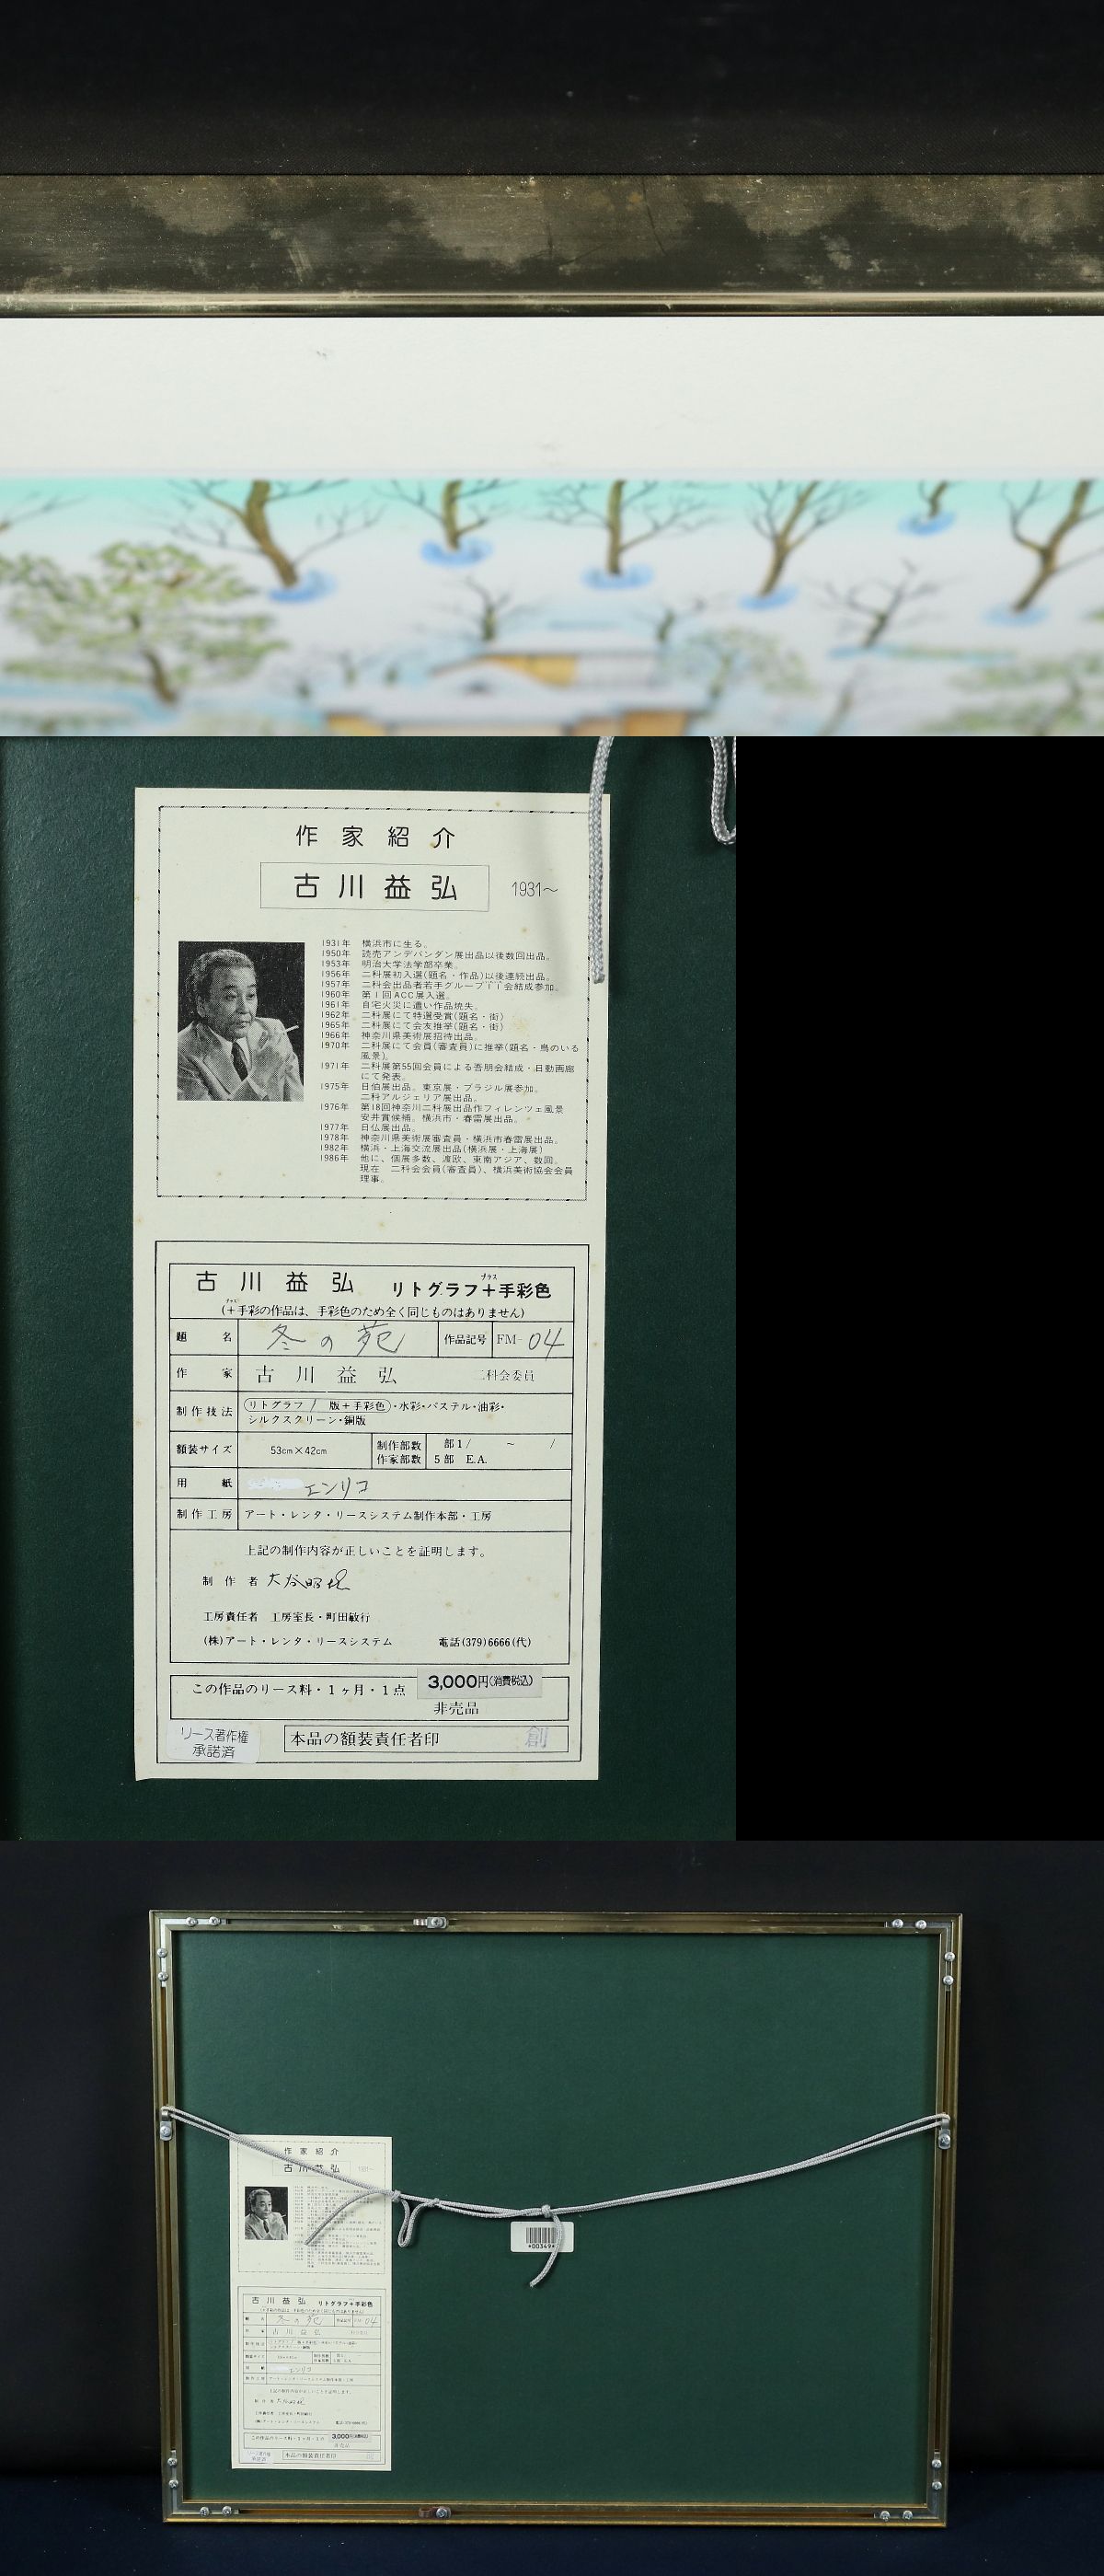 作家紹介
古川益弘 1931〜
1931年 横浜市に生る。
1950年 読売アンデパンダン展出品以後数回出品。
1953年 明治大学法学部卒業。
1956年 二科展初入選(題名・作品)以後連続出品。
1957年 二科会出品者若手グループ 会結成参加。
1960年 第1回ACC展入選。
1961年 自宅火災に遭い作品焼失。
1962年 二科展にて特選受賞(題名・街)
1965年 二科展にて会友推挙(題名・街)
1966年 神奈川県美術展招待出品。
1970年 二科展にて会員(審査員)に推挙(題名・鳥のいる
風景)。
1971年 二科展第55回会員による吾朋会結成・日動画廊
にて発表。
1975年 日伯展出品。東京展・ブラジル展参加。
二科アルジェリア展出品。
1976年 第18回神奈川二科展出品作フィレンツェ風景
安井賞候補。横浜市・春雷展出品。
1977年 日仏展出品。
1978年 神奈川県美術展審査員・横浜市春雷展出品。
1982年 横浜・上海交流展出品(横浜展・上海展)
1986年 他に、個展多数、渡欧、東南アジア、数回。
現在 二科会会員(審査員)、横浜美術協会会員
理事。
古川益弘 リトグラフ+手彩色
プラス
(+手彩の作品は、手彩色のため全く同じものはありません)
題名 冬の苑 作品記号 FM-04
作家 古川益弘 二科会委員
制作技法 リトグラフ / 版+手彩色・水彩・パステル・油彩・
シルクスクリーン・銅版
額装サイズ 53cm×42cm 制作部数 部1/ 〜 /
作家部数 5部 E.A.
用紙 エンリコ
制作工房 アート・レンタ・リースシステム制作本部・工房
上記の制作内容が正しいことを証明します。
制作者
工房責任者 工房室長・町田敏行
(株)アート・レンタ・リースシステム 電話(379)6666(代)
この作品のリース料・1ヶ月・1点 3,000円(消費税込)
非売品
リース著作権
承諾済
本品の額装責任者印 創
作家紹介
古川益弘 1931〜
古川益弘 リトグラフ+手彩色
冬の苑 04
3,000円(消費税込)
非売品
本品の額装責任者印
*00349*